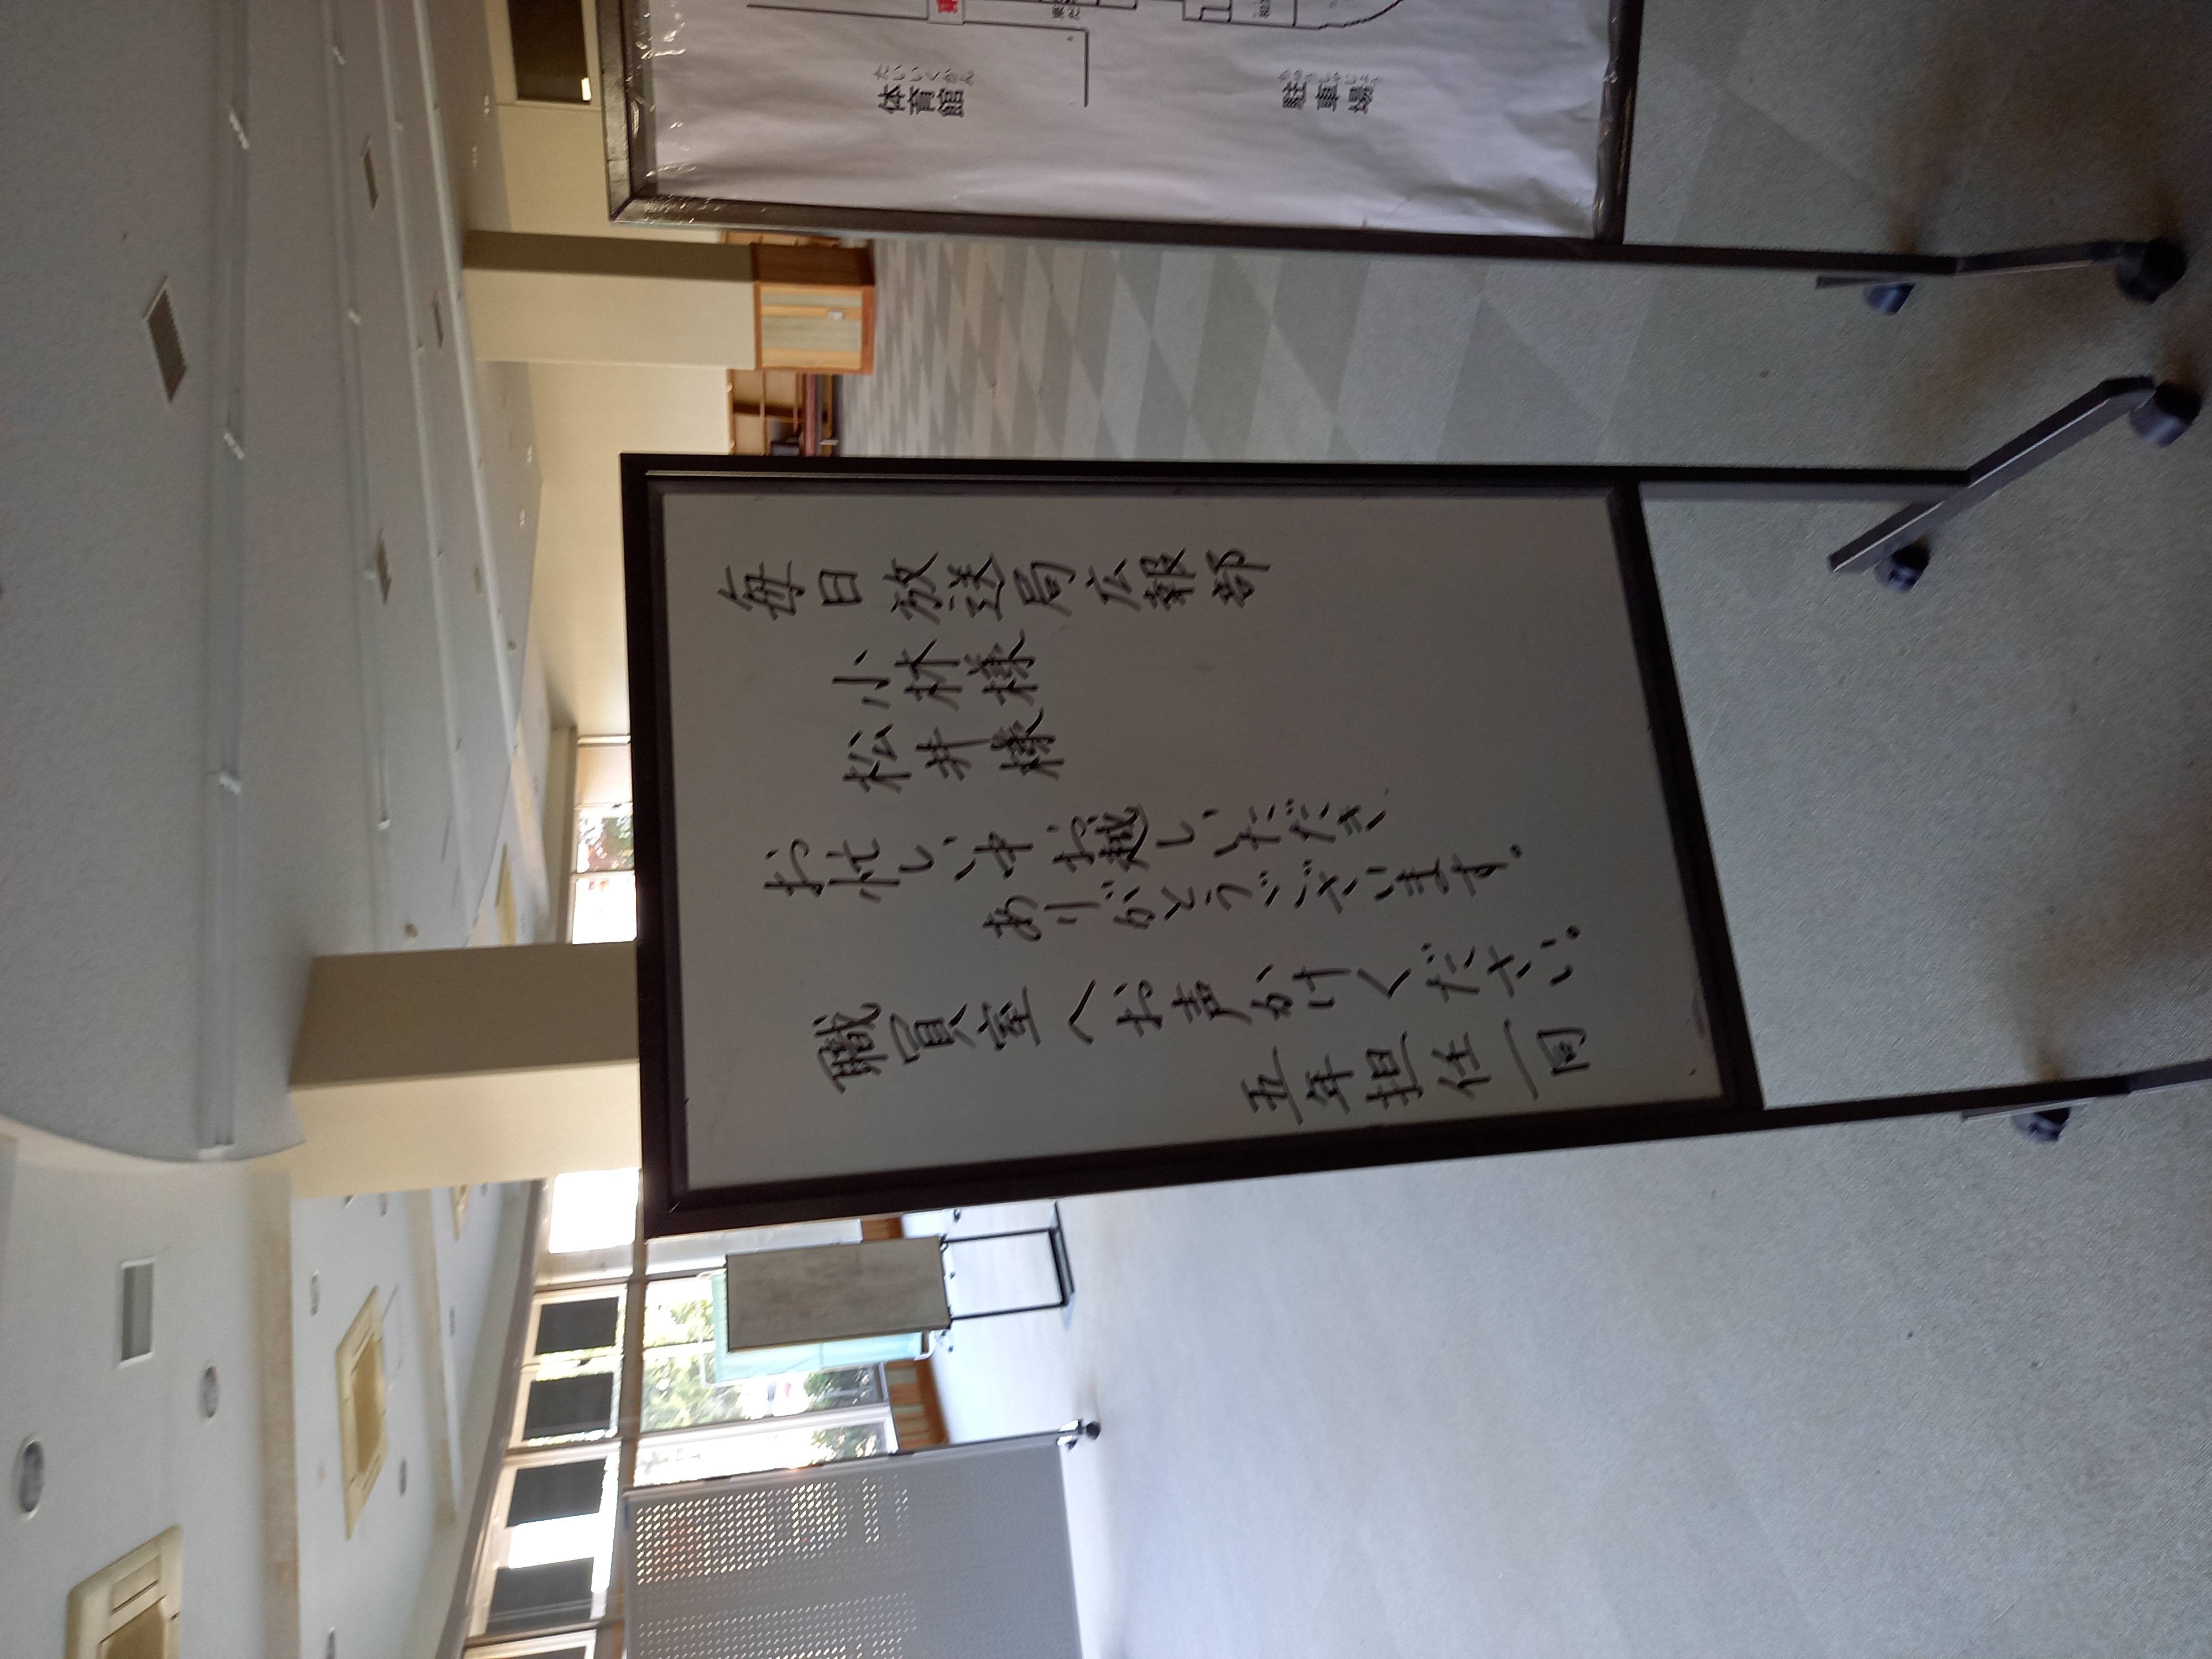 毎日放送局広報部
小林様
松井様
お忙しい中お越しいただき
ありがとうございます。
職員室へお声がけください。
五年担任一同
たいいくかん
体育館
ちゅうしゃじょう
駐車場